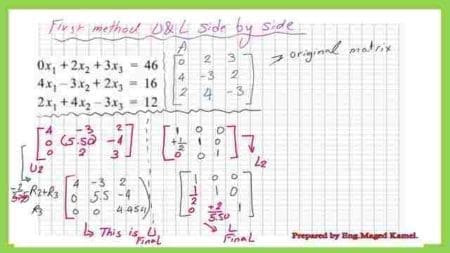 First method U&L side by side
A
0x₁ + 2x₂ + 3x₃ = 46
4x₁ − 3x₂ + 2x₃ = 16
2x₁ + 4x₂ − 3x₃ = 12
0 2 3
4 -3 2
2 4 -3
→ original matrix
4 -3 2
0 (5.50) -4
0 2 3
U2
1 0 0
+1/2 1 0
0 0 1
L2
R2+R3
R3
4 -3 2
0 5.5 -4
0 0 4.454
↳ This is U Final
1 0 0
1/2 1 0
0 +2/5.50 1
L Final
Prepared by Eng.Maged Kamel.